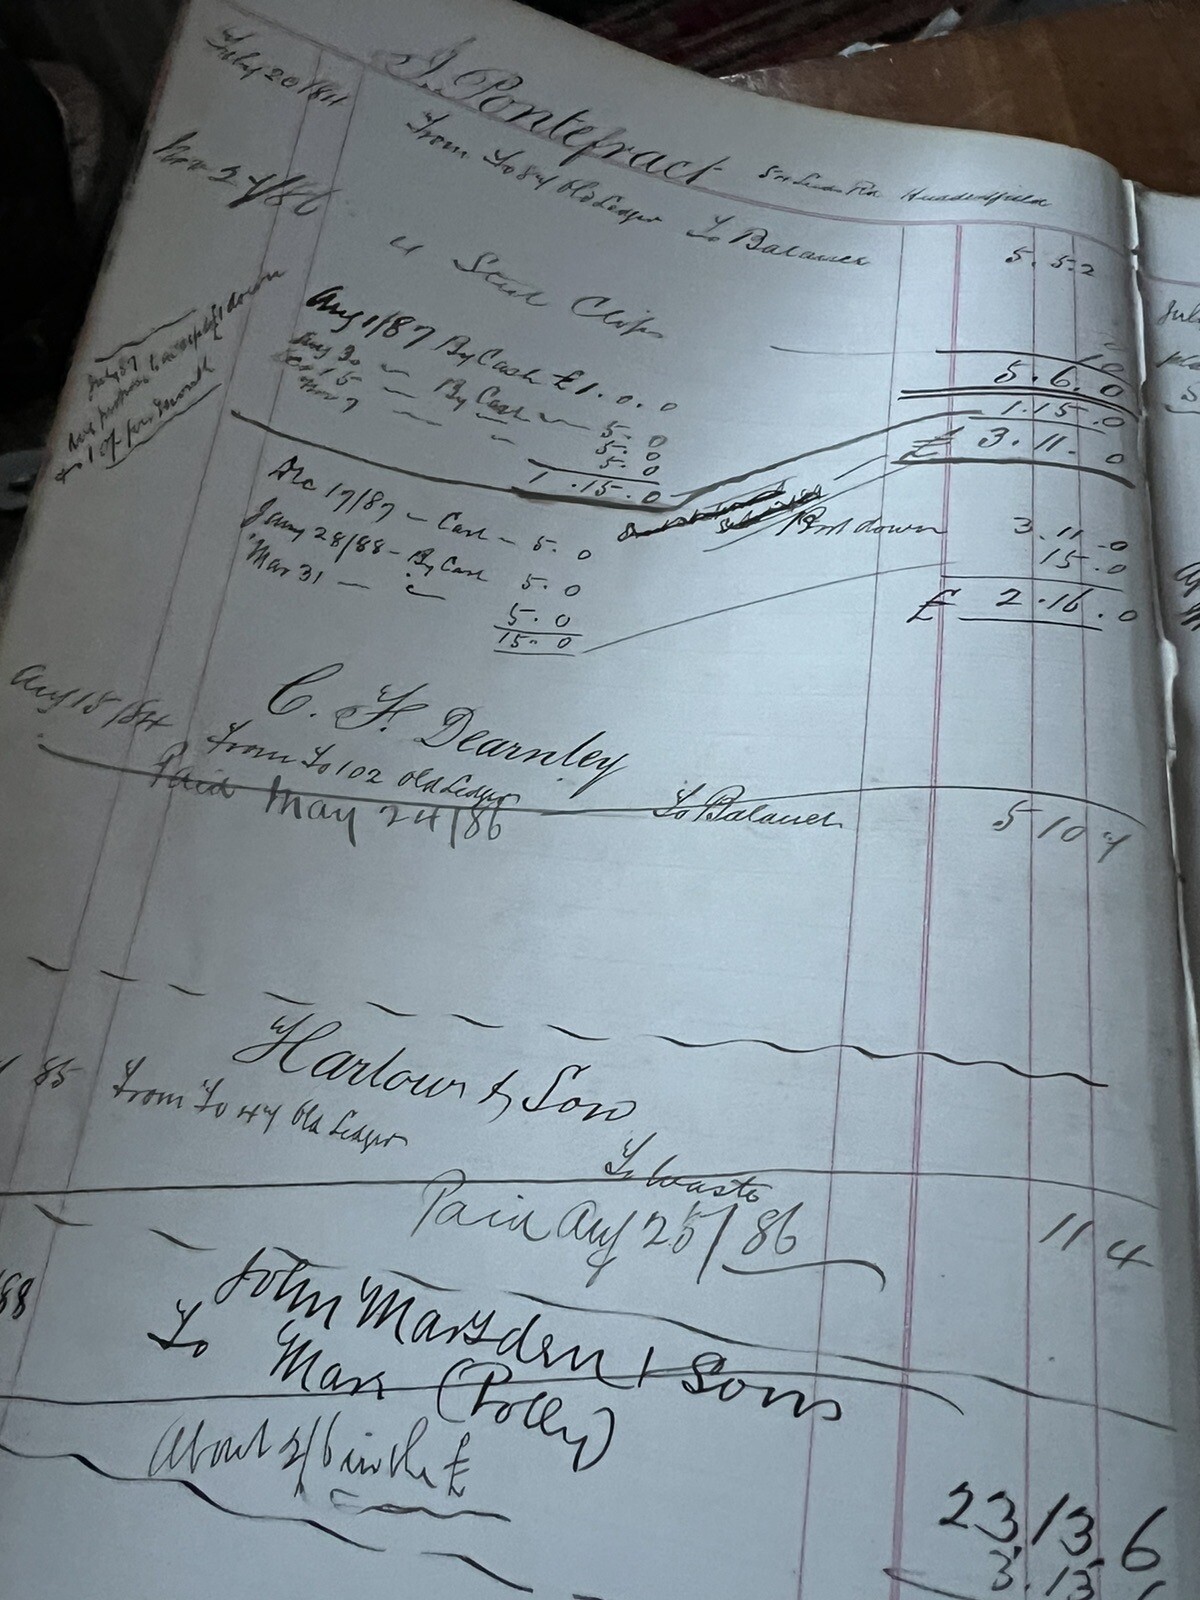 J. Pontefract Huddersfield
July 20/84 From Fo 84 Old Ledger To Balance 5. 5. 2
Nov 27/86 " Steel Clips 10
5. 6. 0
Aug 1/87 By Cash £1. 0. 0 1.15. 0
Aug 30 — By Cash — 5. 0 £ 3. 11. 0
15 — " — 5. 0
Nov 7 — " 5. 0
1. 15. 0
July 87
down
1/- per month
Brot down 3. 11. 0
Dec 17/87 — Cash — 5. 0 15. 0
Jany 28/88 — By Cash 5. 0 £ 2. 16. 0
Mar 31 — 5. 0
15. 0
C. H. Dearnley
Aug 15/84 From Fo 102 Old Ledger To Balance 5 10 4
Paid May 24/86
Harlow & Son
85 From Fo 47 Old Ledger
To Waste 11 4
Paid Aug 25/86
John Marsden & Sons
88 To Mare (Polly) 23. 13. 6
About 2/6 in the £
3. 13